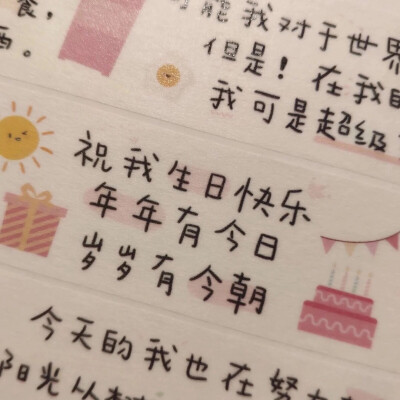 食，
可能我对于世界
酒。
但是！在我
我可是超级
祝我生日快乐
年年有今日
岁岁有今朝
今天的我也在努力
阳光从